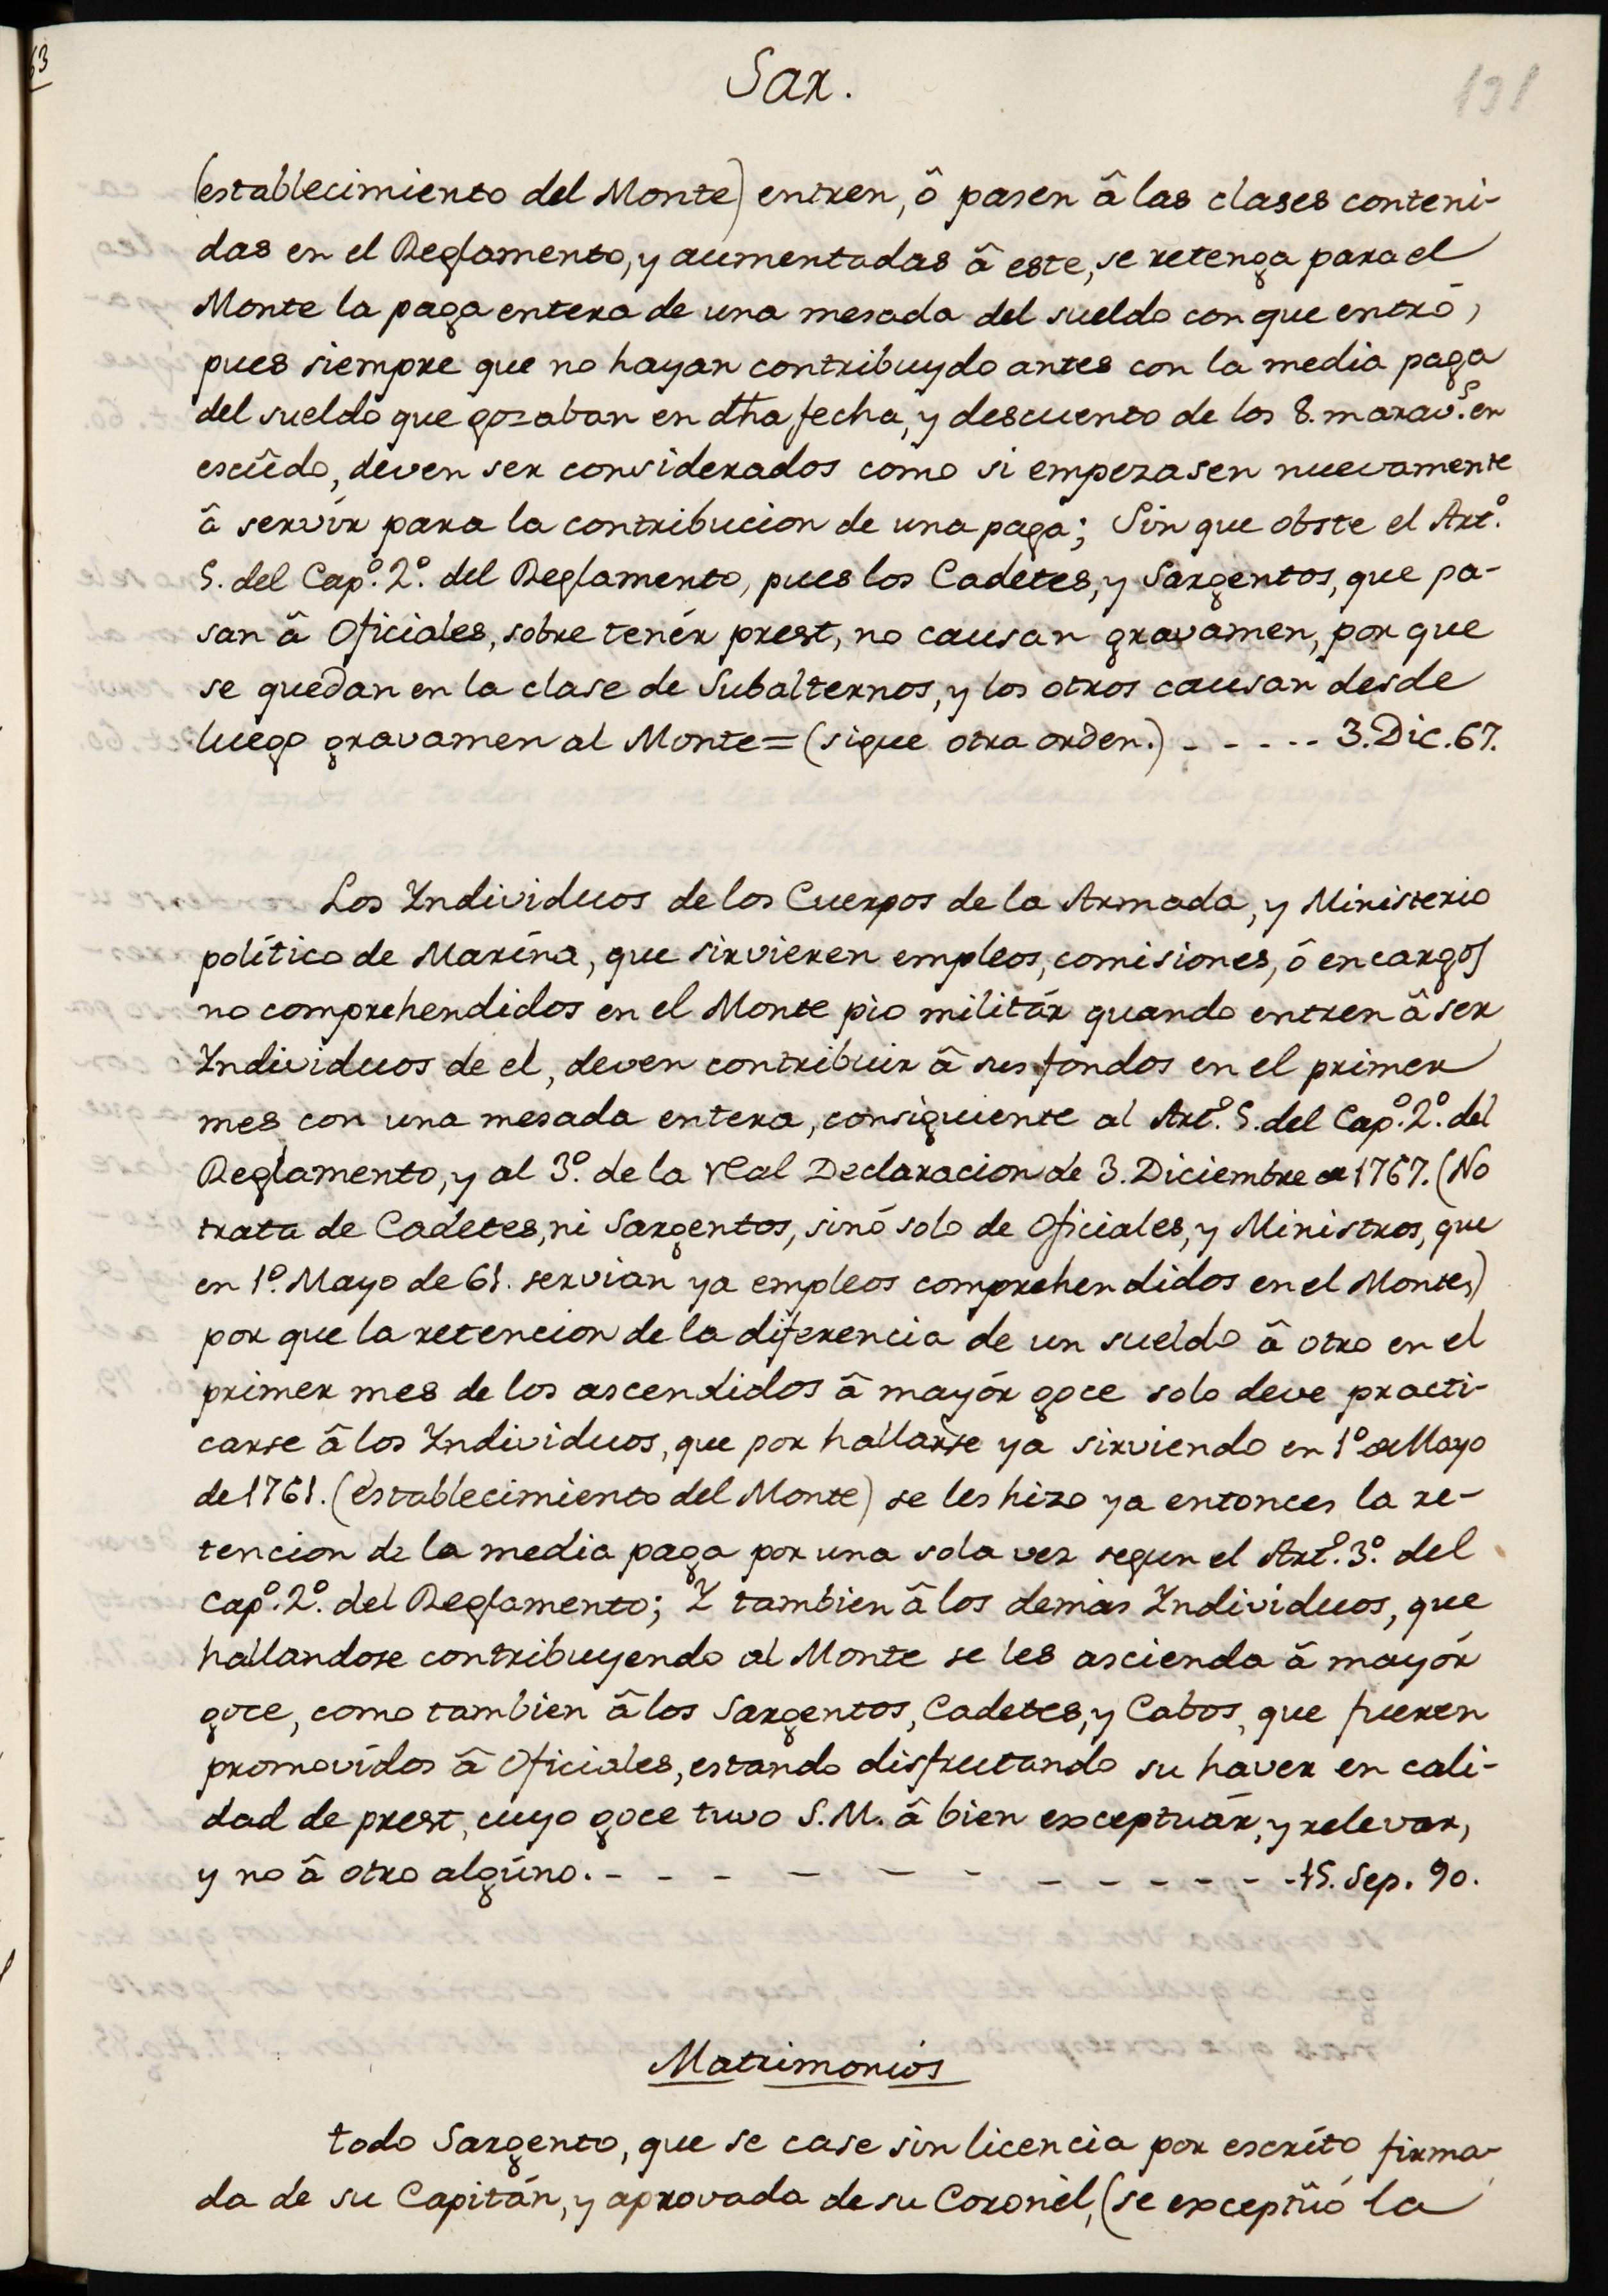 Sar.
191
(establecimiento del Monte) entren, ô pasen â las clases conteni-
das en el Reglamento, y aumentadas â este, se retenga para el
Monte la paga entera de una mesada del sueldo con que entró,
pues siempre que no hayan contribuydo antes con la media paga
del sueldo que gozaban en dha fecha, y descuento de los 8. marav.s en
escûdo, deven ser considerados como si empezasen nuevamente
â servír para la contribucion de una paga; Sin que obste el Art.º
5. del Cap.º 2.º del Reglamento, pues los Cadetes, y Sargentos, que pa-
san â Oficiales, sobre tenér prest, no causan gravamen, por que
se quedan en la clase de Subalternos, y los otros causan desde
luego gravamen al Monte = (sigue otra orden.) - - - - - 3. Dic. 67.
Los Yndividuos de los Cuerpos de la Armada, y Ministerio
polítíco de Marína, que sirvieren empleos, comisiones, ó encargos
no comprehendidos en el Monte pio militár quando entren â ser
Yndividuos de el, deven contribuir â sus fondos en el primer
mes con una mesada entera, consiguiente al Art.º 5. del Cap.º 2.º del
Reglamento, y al 3.º de la Real Declaracion de 3. Diciembre de 1767. (No
trata de Cadetes, ni Sargentos, sinó solo de Oficiales, y Ministros, que
en 1.º Mayo de 61. servian ya empleos comprehendidos en el Monte,)
por que la retencion de la diferencia de un sueldo â otro en el
primer mes de los ascendidos â mayór goce solo deve practi-
carse â los Yndividuos, que por hallarse ya sirviendo en 1.º de Mayo
de 1761. (establecimiento del Monte) se les hizo ya entonces la re-
tencion de la media paga por una sola vez segun el Art.º 3.º del
Cap.º 2.º del Reglamento; Y tambien â los demas Yndividuos, que
hallandose contribuyendo al Monte se les ascienda â mayór
goce, como tambien â los Sargentos, Cadetes, y Cabos, que fueren
promovídos â Oficiales, estando disfrutando su haver en cali-
dad de prest, cuyo goce tuvo S.M. â bien exceptuár, y relevar,
y no â otro algúno. - - - - - - - - - - - - - 15. Sep. 90.
Matrimonios
todo Sargento, que se case sin licencia por escríto firma-
da de su Capitán, y aprovada de su Coronél, (se exceptúó la